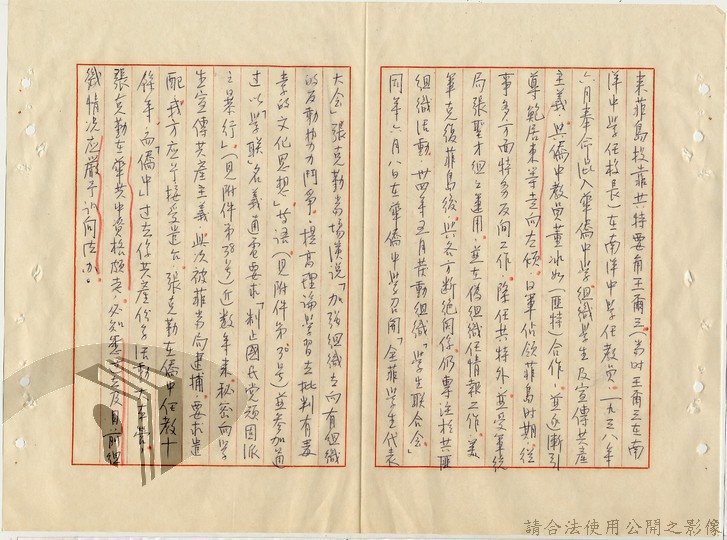 來菲島投靠共特要角王爾三(當时王爾三在南
洋中學任校長)在南洋中學任教員。一九三八年
六月奉命㐲入華僑中學組織學生及宣傳共產
主義,與僑中教員董冰如(匪特)合作,並逐漸引
尊範居東等走向左傾。日軍佔領菲島时期,從
事多方面特务反间工作,除任共特外,並受軍統
局張聖才組之運用,並在偽組織任情報工作。美
軍克復菲島後,與各方斷絕関係仍專注於共匪
組織活動。卅四年五月发動組織「學生联合会」
同年六月八日在華僑中學召開「全菲學生代表
大会」張克勤當場演說「加強組織去向有組織
的反動勢力鬥爭,提高理論學習去批判有毒
素的文化思想」等語(見附件第30号)並参加通
过以「學联」名義通電要求「制止國民党頑固派
之暴行」(見附件第38号)近数年來秘密向學
生宣傳共產主義,此次被菲當局逮捕,要求遣
配我方应予接受遣台。張克勤在僑中任教十
餘年,而「僑中」过去係共產份子活動大本營,
張克勤在華共中資格頗老,必知悉过去及目前組
織情况应嚴予訊问法办。
請合法使用公開之影像